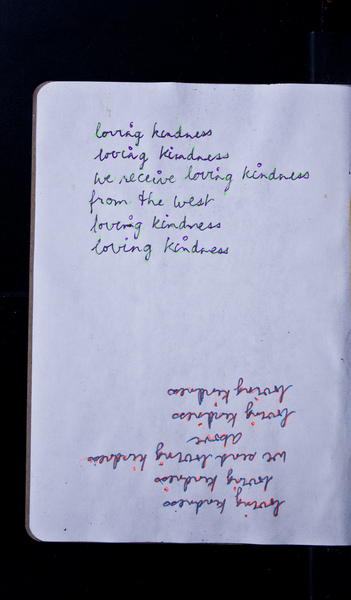 loving kindness
loving kindness
we receive loving kindness
from the west
loving kindness
loving kindness
loving kindness
loving kindness
we send loving kindness
above
loving kindness
loving kindness